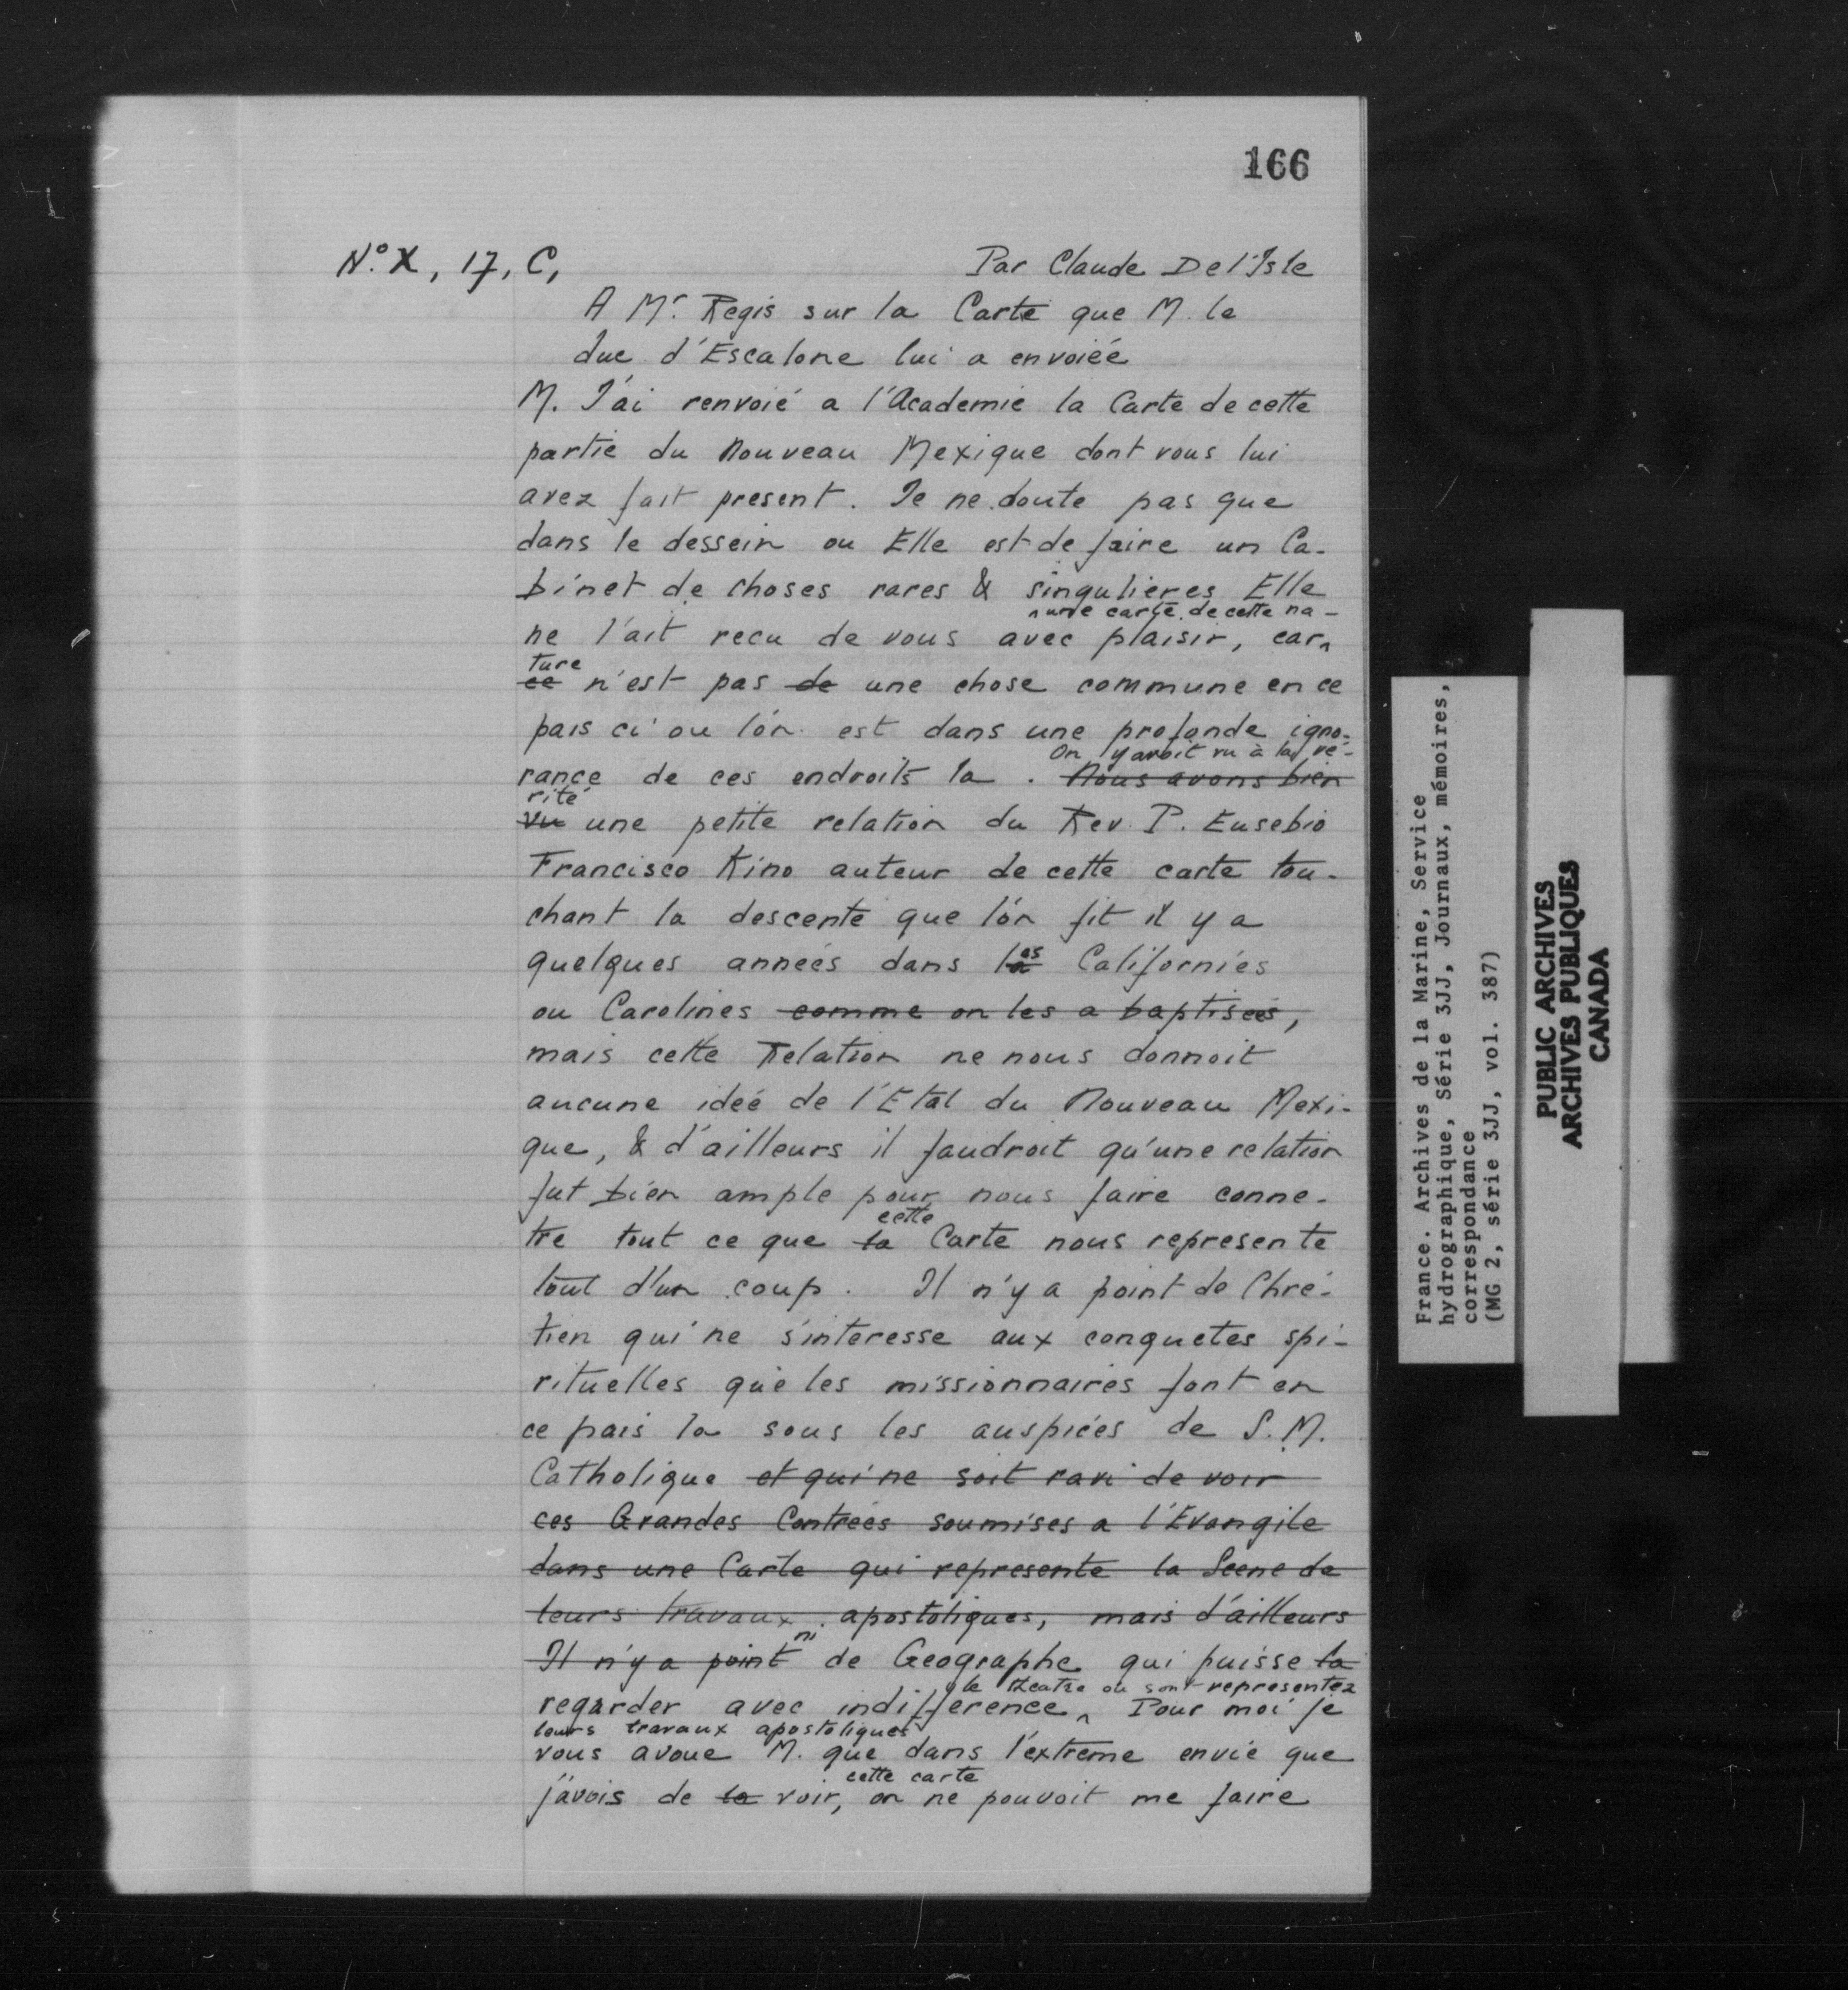 166
N.º X, 17, C, Par Claude De l'Isle
A Mr. Regis sur la Carte que M. le
duc d'Escalone lui a envoiéé
M. J'ai renvoié a l'Academie la Carte de cette
partie du Nouveau Mexique dont vous lui
avez fait present. Je ne doute pas que
dans le dessein ou Elle est de faire un Ca-
binet de choses rares & singulieres Elle
une carte de cette na-
ne l'ait recu de vous avec plaisir, car
ture
ce n'est pas de une chose commune en ce
pais ci ou l'on est dans une profonde igno-
On y avoit vu à la vé-
rance de ces endroits la. Nous avons bien
rité
vu une petite relation du Rev. P. Eusebio
Francisco Kino auteur de cette carte tou-
chant la descente que l'on fit il y a
quelques annéés dans les Californies
ou Carolines comme on les a baptiséés,
mais cette Relation ne nous donnoit
aucune idéé de l'Etat du Nouveau Mexi-
que, & d'ailleurs il faudroit qu'une relation
fut bien ample pour nous faire conne-
cette
tre tout ce que la Carte nous represente
tout d'un coup. Il n'y a point de Chré-
tien qui ne s'interesse aux conquetes spi-
rituelles que les missionnaires font en
ce pais la sous les auspices de S. M.
Catholique et qui ne soit ravi de voir
ces Grandes Contréés soumises a l'Evangile
dans une Carte qui represente la Scene de
leurs travaux apostoliques, mais d'ailleurs
ni
Il n'y a point de Geographe qui puisse la
le theatre où sont representez
regarder avec indifference. Pour moi je
leurs travaux apostoliques
vous avoue M. que dans l'extreme envie que
cette carte
j'avois de la voir, on ne pouvoit me faire
France. Archives de la Marine, Service
hydrographique, Série 3JJ, Journaux, mémoires,
correspondance
(MG 2, série 3JJ, vol. 387)
PUBLIC ARCHIVES
ARCHIVES PUBLIQUES
CANADA